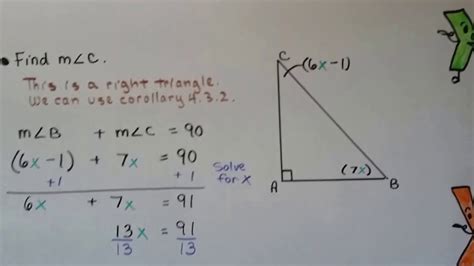 • Find m∠C.
This is a right triangle.
We can use corollary 4.3.2.
m∠B + m∠C = 90
(6x-1) + 7x = 90
+1 +1
Solve for x
6x + 7x = 91
13x = 91
13 13
C
(6x-1)
(7x)
A
B